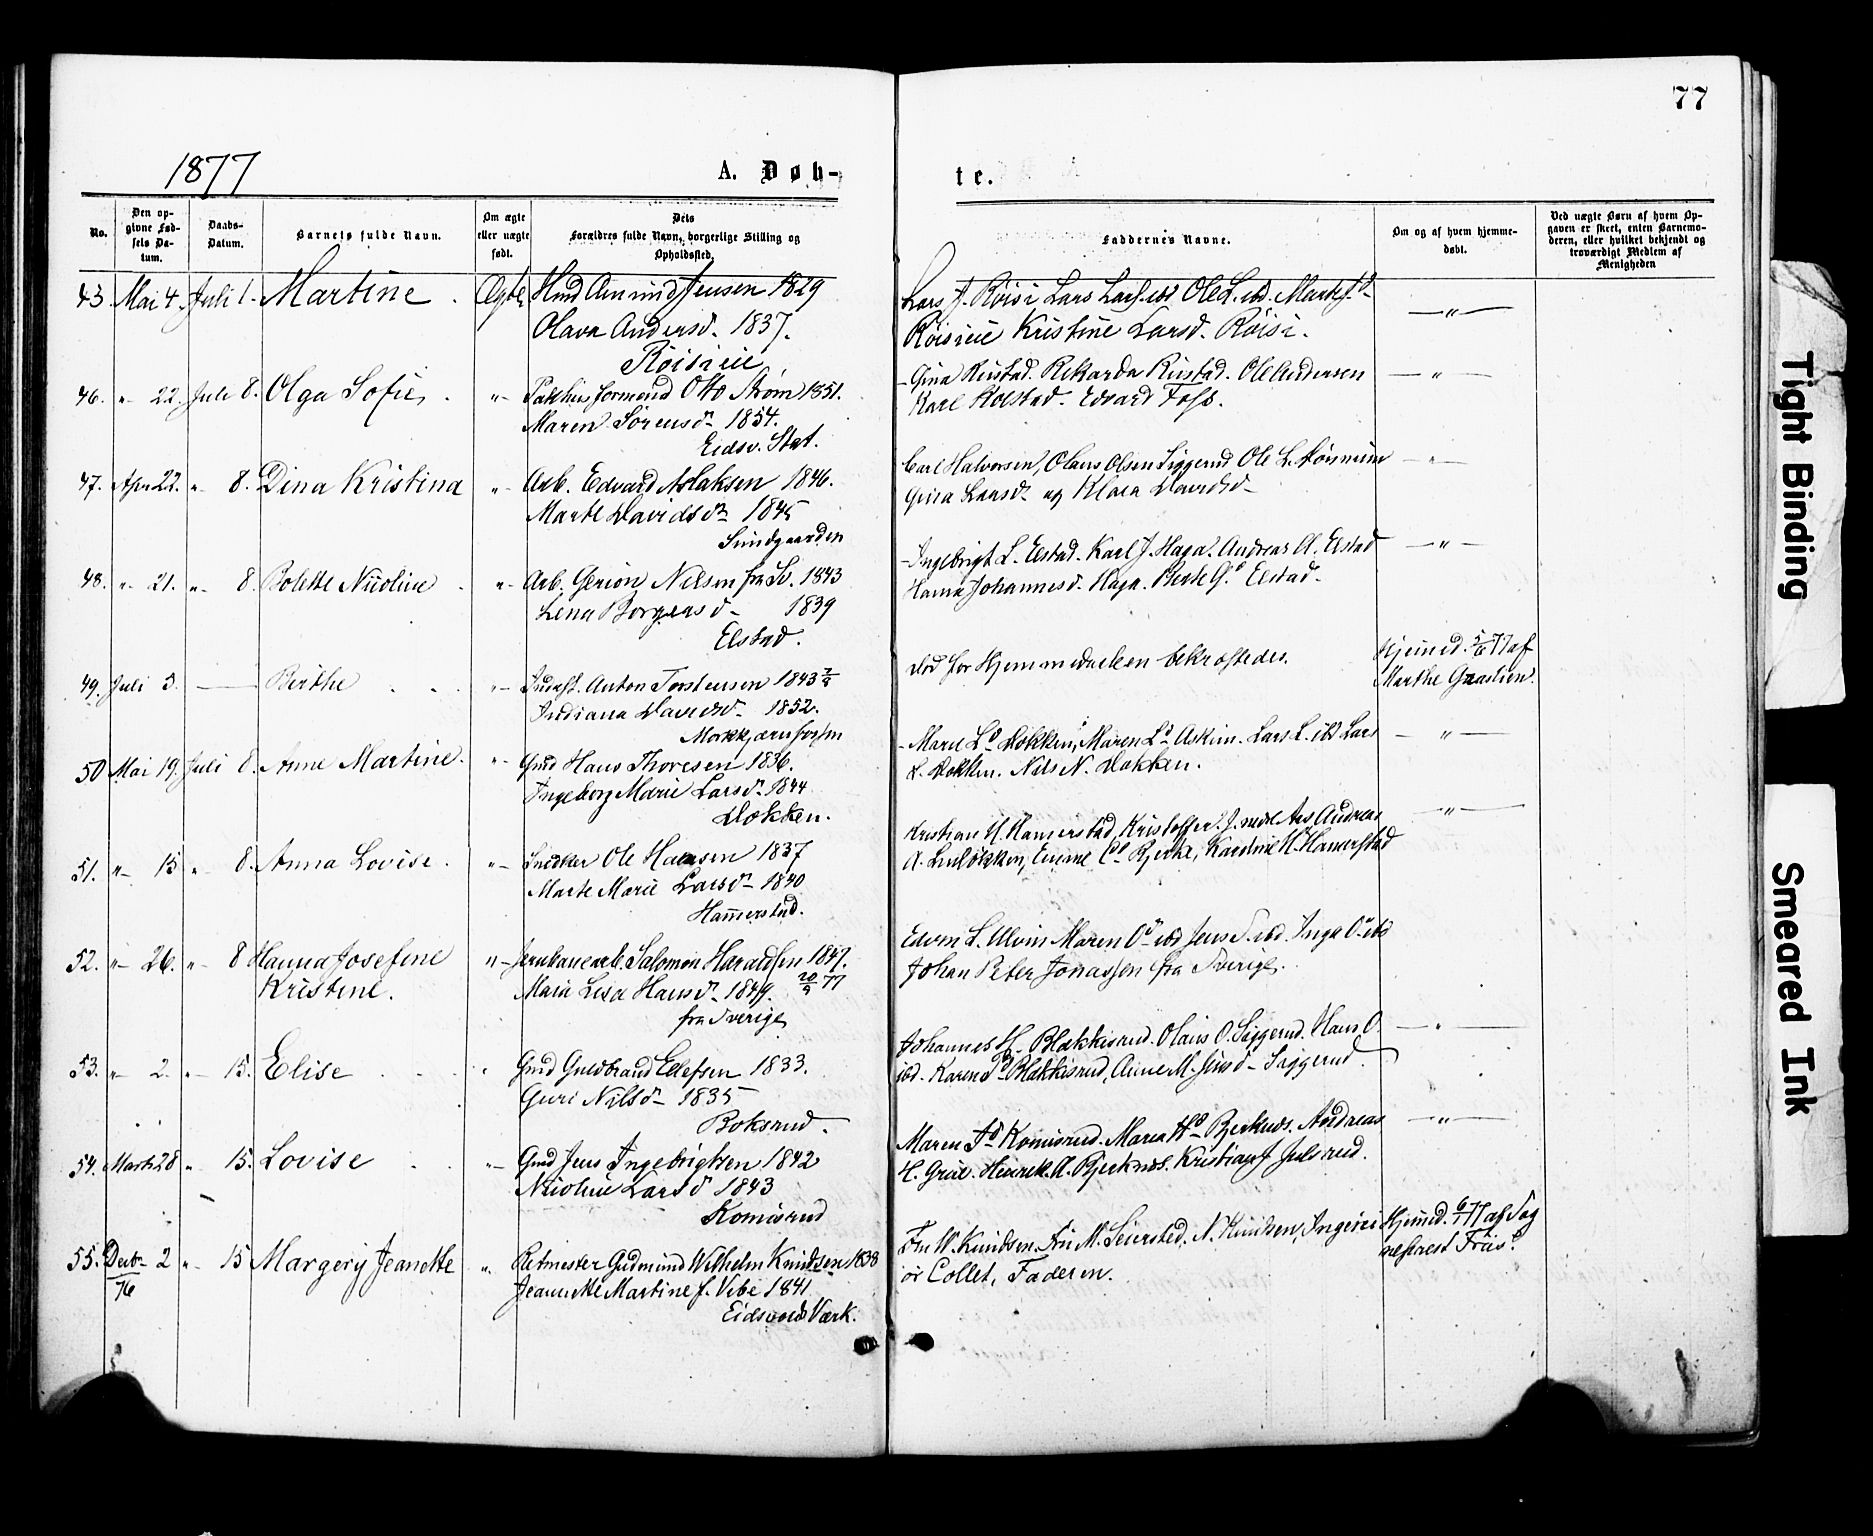 77
1877
A. Døb-
te.
No.
Den op-
givne Fød-
sels Da-
tum.
Daabs-
Datum.
Barnets fulde Navn.
Om ægte
eller uægte
født.
Dets
Forældres fulde Navn, borgerlige Stilling og
Opholdssted.
Faddernes Navne.
Om og af hvem hjemme-
døbt.
Ved uægte Børn af hvem Op-
gaven er skeet, enten Barnemo-
deren, eller hvilket bekjendt og
troværdigt Medlem af
Menigheden
Mai 4. Juli 1. Martine Ægte Hmd Amund Jensen 1829
Olava Andersd. 1837.
Røisieie
Lars J. Røisi Lars Lars. ibd Ole L. ibd.
Røisieie Kristine Larsd. Røisi.
46. " 22. Juli 8. Olga Sofie " Pakhusformand Otto Strøm 1851.
Maren Sörensd. 1854.
Eidsv. Stat.
Gina Rustad. Rikarda Rustad. Ole Andersen
Karl Kolstad. Edvard Foss.
47. Apr 22. " 8. Dina Kristina " Arb. Edvard Aslaksen 1846.
Marte Davidsd. 1845
Sundgaarden
Carl Halvorsen, Olaus Olsen Siggerud Ole L.
Gina Larsd. og Klara Davidsd.
48. " 21. " 8. Bolette Nicoline " Arb. Nilsen fra Sv. 1843
Lena Borgersd. 1839
Elstad.
Ingebrigt L. Elstad. Karl J. Haga. Andreas A. Elstad
Hanna Johannesd. Haga. Berte G. Elstad.
49. Juli 3. Berthe " Anton Torstensen 1843
Indiana Davidsd. 1852.
Morkkjærnfossen
død før Hjemmedaaben bekræftedes.
Hjemd. 5/6 77 af
Marthe Graastien.
50 Mai 19. Juli 8. Anne Martine. " Gmd Hans Thoresen 1836.
Ingeborg Marie Larsd. 1844
Dokken.
Marie Ld. Dokken, Maren Ld. Askim. Lars L. ibd Lars
L. Dokken. Nils N. Dokken.
51. " 15 " 8. Anna Lovise. " Snedker Ole Hansen 1837
Marte Marie Larsd. 1840
Hammerstad.
Kristian H. Hamerstad, Kristoffer J. Andreas
A. Emme Bjerke, Karoline H. Hamerstad
52. " 26. " 8 Hanna Josefine
Kristine.
" Jernbanearb. Salomon Haraldsen 1847.
Maia Lisa Hansd. 1849. 77
fra Sverige
Edvin L. Ulvin Maren O. ibd Jens ibd. Inga O. ibd
Johan Peter Jonassen fra Sverige.
53. " 2. " 15. Elise " Gmd Guldbrand Ellefsen 1833.
Guri Nilsd. 1835
Boksrud.
Johannes H. Blakkisrud. Olaus O. Siggerud. Hans O.
ibd. Karen Blakkisrud, Anne M. Siggerud.
54. Marts 28 " 15. Lovise " Gmd Jens Ingebrigtsen 1842
Nicoline Larsd 1843
Komisrud
Maren Komisrud. Maria Bjerknes. Andreas
H. Henrik A. Bjerknes. Kristian J Julsrud.
55. Decbr 2 " 15 Margery Jeanette
76
" Ritmester Gudmund Wilhelm Knudsen 1838
Jeannette Martine f. Vibe 1841
Eidsvolds Værk.
Fru W. Knudsen. M. Seiersted. N. Knudsen, Ingeni-
ør Collet, Faderen.
Hjemd. 6/1 77 af Sog
nepræst Friis.
Tight Binding
Smeared Ink